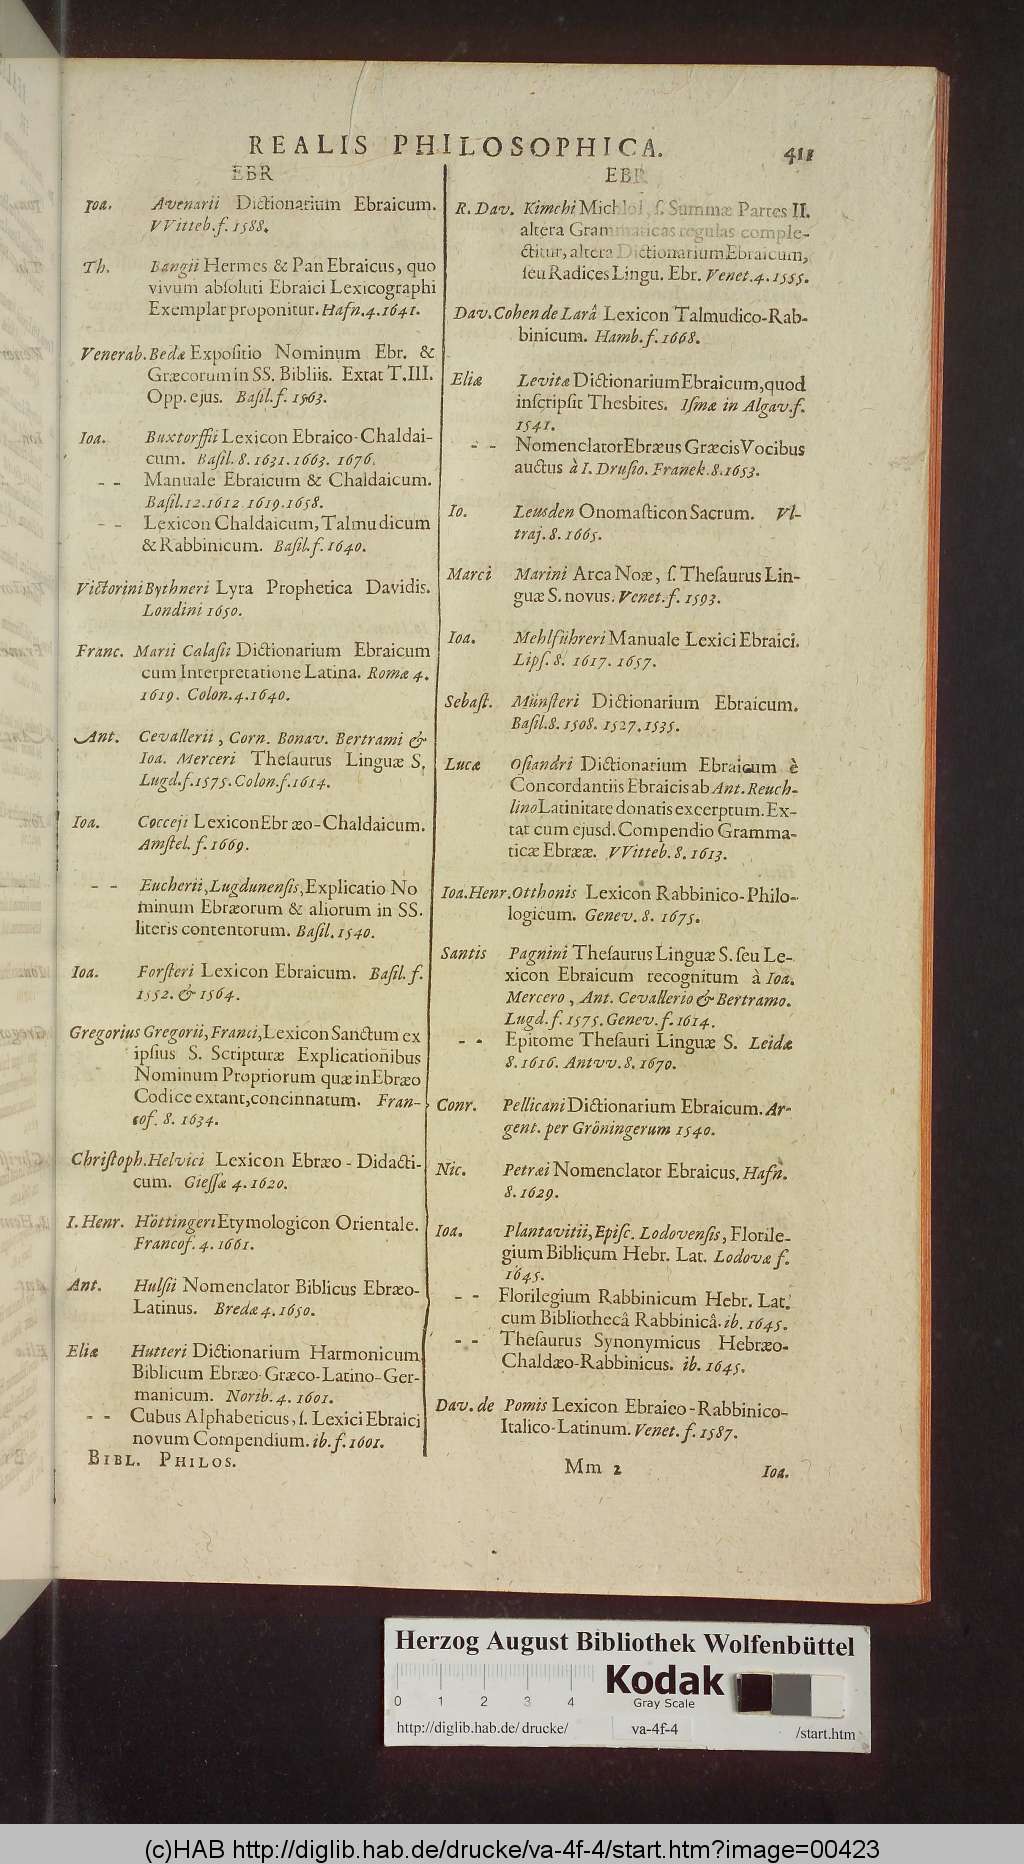 REALIS PHILOSOPHICA. 411
EBR
Ioa. Avenarii Dictionarium Ebraicum.
VVitteb. f. 1588.
Th. Bangii Hermes & Pan Ebraicus, quo
vivum abſoluti Ebraici Lexicographi
Exemplar proponitur. Hafn. 4. 1641.
Venerab. Bedæ Expoſitio Nominum Ebr. &
Græcorum in SS. Bibliis. Extat T. III.
Opp. ejus. Baſil. f. 1563.
Ioa. Buxtorffii Lexicon Ebraico-Chaldai-
cum. Baſil. 8. 1631. 1663. 1676.
- - Manuale Ebraicum & Chaldaicum.
Baſil. 12. 1612 1619. 1658.
- - Lexicon Chaldaicum, Talmudicum
& Rabbinicum. Baſil. f. 1640.
Victorini Bythneri Lyra Prophetica Davidis.
Londini 1650.
Franc. Marii Calaſii Dictionarium Ebraicum
cum Interpretatione Latina. Romæ 4.
1619. Colon. 4. 1640.
Ant. Cevallerii, Corn. Bonav. Bertrami &
Ioa. Merceri Theſaurus Linguæ S.
Lugd. f. 1575. Colon. f. 1614.
Ioa. Cocceji Lexicon Ebræo-Chaldaicum.
Amſtel. f. 1669.
- - Eucherii, Lugdunenſis, Explicatio No
minum Ebræorum & aliorum in SS.
literis contentorum. Baſil. 1540.
Ioa. Forſteri Lexicon Ebraicum. Baſil. f.
1552. & 1564.
Gregorius Gregorii, Franci, Lexicon Sanctum ex
ipſius S. Scripturæ Explicationibus
Nominum Propriorum quæ in Ebræo
Codice extant, concinnatum. Fran-
cof. 8. 1634.
Chriſtoph. Helvici Lexicon Ebræo-Didacti-
cum. Gieſſæ 4. 1620.
I. Henr. Höttingeri Etymologicon Orientale.
Francof. 4. 1661.
Ant. Hulſii Nomenclator Biblicus Ebræo-
Latinus. Bredæ 4. 1650.
Eliæ Hutteri Dictionarium Harmonicum
Biblicum Ebræo-Græco-Latino-Ger-
manicum. Norib. 4. 1601.
- - Cubus Alphabeticus, ſ. Lexici Ebraici
novum Compendium. ib. f. 1601.
BIBL. PHILOS.
EBR
R. Dav. Kimchi Michlol, ſ. Summæ Partes II.
altera Grammaticas regulas comple-
ctitur, altera Dictionarium Ebraicum,
ſeu Radices Lingu. Ebr. Venet. 4. 1555.
Dav. Cohen de Larâ Lexicon Talmudico-Rab-
binicum. Hamb. f. 1668.
Eliæ Levitæ Dictionarium Ebraicum, quod
inſcripſit Thesbites. Iſmæ in Algav. f.
1541.
- - Nomenclator Ebræus Græcis Vocibus
auctus à I. Druſio. Franek. 8. 1653.
Io. Leusden Onomaſticon Sacrum. Vl-
traj. 8. 1665.
Marci Marini Arca Noæ, ſ. Theſaurus Lin-
guæ S. novus. Venet. f. 1593.
Ioa. Mehlführeri Manuale Lexici Ebraici.
Lipſ. 8. 1617. 1657.
Sebaſt. Münſteri Dictionarium Ebraicum.
Baſil. 8. 1508. 1527. 1535.
Lucæ Oſiandri Dictionarium Ebraicum è
Concordantiis Ebraicis ab Ant. Reuch-
lino Latinitate donatis excerptum. Ex-
tat cum ejusd. Compendio Gramma-
ticæ Ebrææ. VVitteb. 8. 1613.
Ioa. Henr. Otthonis Lexicon Rabbinico-Philo-
logicum. Genev. 8. 1675.
Santis Pagnini Theſaurus Linguæ S. ſeu Le-
xicon Ebraicum recognitum à Ioa.
Mercero, Ant. Cevallerio & Bertramo.
Lugd. f. 1575. Genev. f. 1614.
- - Epitome Theſauri Linguæ S. Leidæ
8. 1616. Antvv. 8. 1670.
Conr. Pellicani Dictionarium Ebraicum. Ar-
gent. per Gröningerum 1540.
Nic. Petræi Nomenclator Ebraicus. Hafn.
8. 1629.
Ioa. Plantavitii, Epiſc. Lodovenſis, Florile-
gium Biblicum Hebr. Lat. Lodovæ f.
1645.
- - Florilegium Rabbinicum Hebr. Lat.
cum Bibliothecâ Rabbinicâ. ib. 1645.
- - Theſaurus Synonymicus Hebræo-
Chaldæo-Rabbinicus. ib. 1645.
Dav. de Pomis Lexicon Ebraico-Rabbinico-
Italico-Latinum. Venet. f. 1587.
Mm 2 Ioa.
Herzog August Bibliothek Wolfenbüttel
Kodak
Gray Scale
0 1 2 3 4
http://diglib.hab.de/drucke/ va-4f-4 /start.htm
(c)HAB http://diglib.hab.de/drucke/va-4f-4/start.htm?image=00423